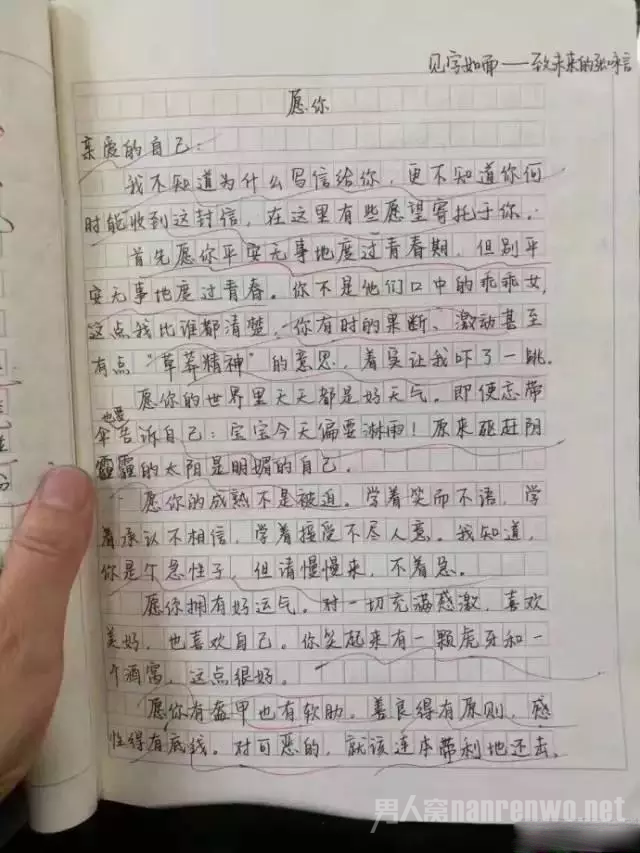 见字如面——致未来的张咏言
愿你
亲爱的自己：
我不知道为什么写信给你，更不知道你何
时能收到这封信，在这里有些愿望寄托于你。
首先愿你平安无事地度过青春期，但别平
安无事地度过青春。你不是他们口中的乖乖女，
这点我比谁都清楚，你有时的果断、激动甚至
有点“草莽精神”的意思，着实让我吓了一跳。
愿你的世界里天天都是好天气。即便忘带
也要
伞告诉自己：宝宝今天偏要淋雨！原来驱赶阴
霾的太阳是明媚的自己。
愿你的成熟不是被迫。学着笑而不语，学
着承认不相信，学着接受不尽人意。我知道，
你是个急性子，但请慢慢来，不着急。
愿你拥有好运气。对一切充满感激，喜欢
美好，也喜欢自己。你笑起来有一颗虎牙和一
个酒窝，这点很好。
愿你有盔甲也有软肋。善良得有原则，感
性得有底线。对可恶的，就该连本带利地还去。
男人窝nanrenwo.net